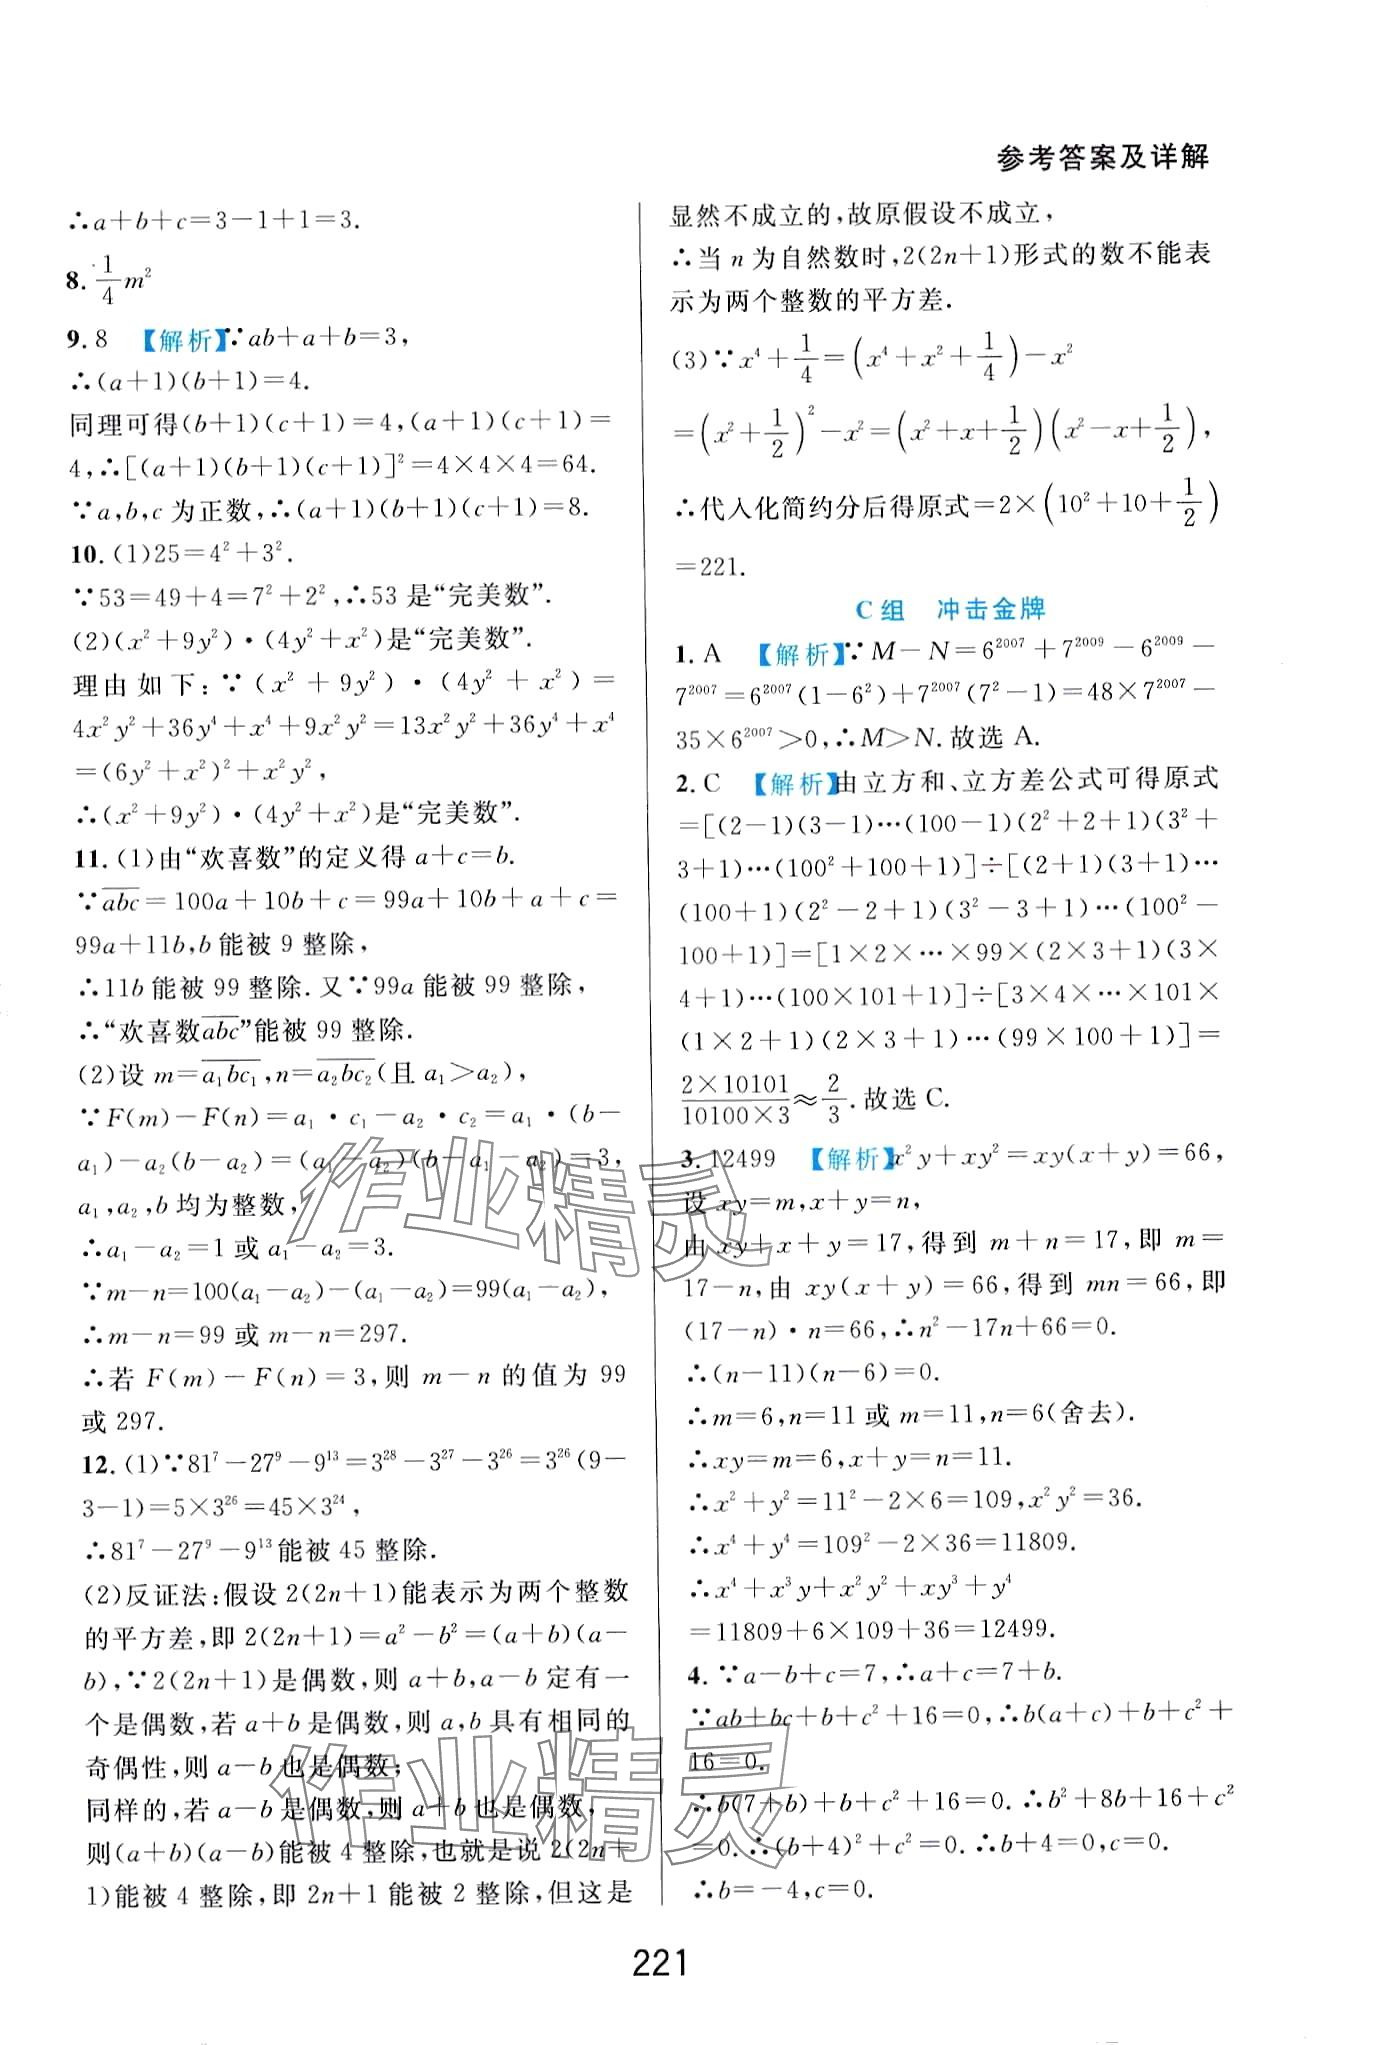 参考答案及详解
∴a+b+c=3-1+1=3.
8. 1/4 m²
9. 8 【解析】∵ab+a+b=3,
∴(a+1)(b+1)=4.
同理可得(b+1)(c+1)=4,(a+1)(c+1)=
4,∴[(a+1)(b+1)(c+1)]²=4×4×4=64.
∵a,b,c 为正数,∴(a+1)(b+1)(c+1)=8.
10. (1)25=4²+3².
∵53=49+4=7²+2²,∴53 是“完美数”.
(2)(x²+9y²)·(4y²+x²)是“完美数”.
理由如下:∵(x²+9y²)·(4y²+x²)=
4x²y²+36y⁴+x⁴+9x²y²=13x²y²+36y⁴+x⁴
=(6y²+x²)²+x²y²,
∴(x²+9y²)·(4y²+x²)是“完美数”.
11. (1)由“欢喜数”的定义得 a+c=b.
∵a̅b̅c̅=100a+10b+c=99a+10b+a+c=
99a+11b,b 能被 9 整除,
∴11b 能被 99 整除.又∵99a 能被 99 整除,
∴“欢喜数a̅b̅c̅”能被 99 整除.
(2)设 m=a̅₁b̅c̅₁,n=a̅₂b̅c̅₂(且 a₁>a₂),
∵F(m)-F(n)=a₁·c₁-a₂·c₂=a₁·(b-
a₁)-a₂(b-a₂)=(a₁-a₂)(b-a₁-a₂)=3,
a₁,a₂,b 均为整数,
∴a₁-a₂=1 或 a₁-a₂=3.
∵m-n=100(a₁-a₂)-(a₁-a₂)=99(a₁-a₂),
∴m-n=99 或 m-n=297.
∴若 F(m)-F(n)=3,则 m-n 的值为 99
或 297.
12. (1)∵81⁷-27⁹-9¹³=3²⁸-3²⁷-3²⁶=3²⁶(9-
3-1)=5×3²⁶=45×3²⁴,
∴81⁷-27⁹-9¹³能被 45 整除.
(2)反证法:假设 2(2n+1)能表示为两个整数
的平方差,即 2(2n+1)=a²-b²=(a+b)(a-
b),∵2(2n+1)是偶数,则 a+b,a-b 定有一
个是偶数,若 a+b 是偶数,则 a,b 具有相同的
奇偶性,则 a-b 也是偶数;
同样的,若 a-b 是偶数,则 a+b 也是偶数,
则(a+b)(a-b)能被 4 整除,也就是说 2(2n+
1)能被 4 整除,即 2n+1 能被 2 整除,但这是
显然不成立的,故原假设不成立,
∴当 n 为自然数时,2(2n+1)形式的数不能表
示为两个整数的平方差.
(3)∵x⁴+1/4=(x⁴+x²+1/4)-x²
=(x²+1/2)²-x²=(x²+x+1/2)(x²-x+1/2),
∴代入化简约分后得原式=2×(10²+10+1/2)
=221.
C 组 冲击金牌
1. A 【解析】∵M-N=6²⁰⁰⁷+7²⁰⁰⁹-6²⁰⁰⁹-
7²⁰⁰⁷=6²⁰⁰⁷(1-6²)+7²⁰⁰⁷(7²-1)=48×7²⁰⁰⁷-
35×6²⁰⁰⁷>0,∴M>N.故选 A.
2. C 【解析】由立方和、立方差公式可得原式
=[(2-1)(3-1)…(100-1)(2²+2+1)(3²+
3+1)…(100²+100+1)]÷[(2+1)(3+1)…
(100+1)(2²-2+1)(3²-3+1)…(100²-
100+1)]=[1×2×…×99×(2×3+1)(3×
4+1)…(100×101+1)]÷[3×4×…×101×
(1×2+1)(2×3+1)…(99×100+1)]=
2×10101/10100×3≈2/3.故选 C.
3. 12499 【解析】x²y+xy²=xy(x+y)=66,
设 xy=m,x+y=n,
由 xy+x+y=17,得到 m+n=17,即 m=
17-n,由 xy(x+y)=66,得到 mn=66,即
(17-n)·n=66,∴n²-17n+66=0.
∴(n-11)(n-6)=0.
∴m=6,n=11 或 m=11,n=6(舍去).
∴xy=m=6,x+y=n=11.
∴x²+y²=11²-2×6=109,x²y²=36.
∴x⁴+y⁴=109²-2×36=11809.
∴x⁴+x³y+x²y²+xy³+y⁴
=11809+6×109+36=12499.
4. ∵a-b+c=7,∴a+c=7+b.
∵ab+bc+b+c²+16=0,∴b(a+c)+b+c²+
16=0.
∴b(7+b)+b+c²+16=0.∴b²+8b+16+c²
=0.∴(b+4)²+c²=0.∴b+4=0,c=0.
∴b=-4,c=0.
221
作业精灵
作业精灵